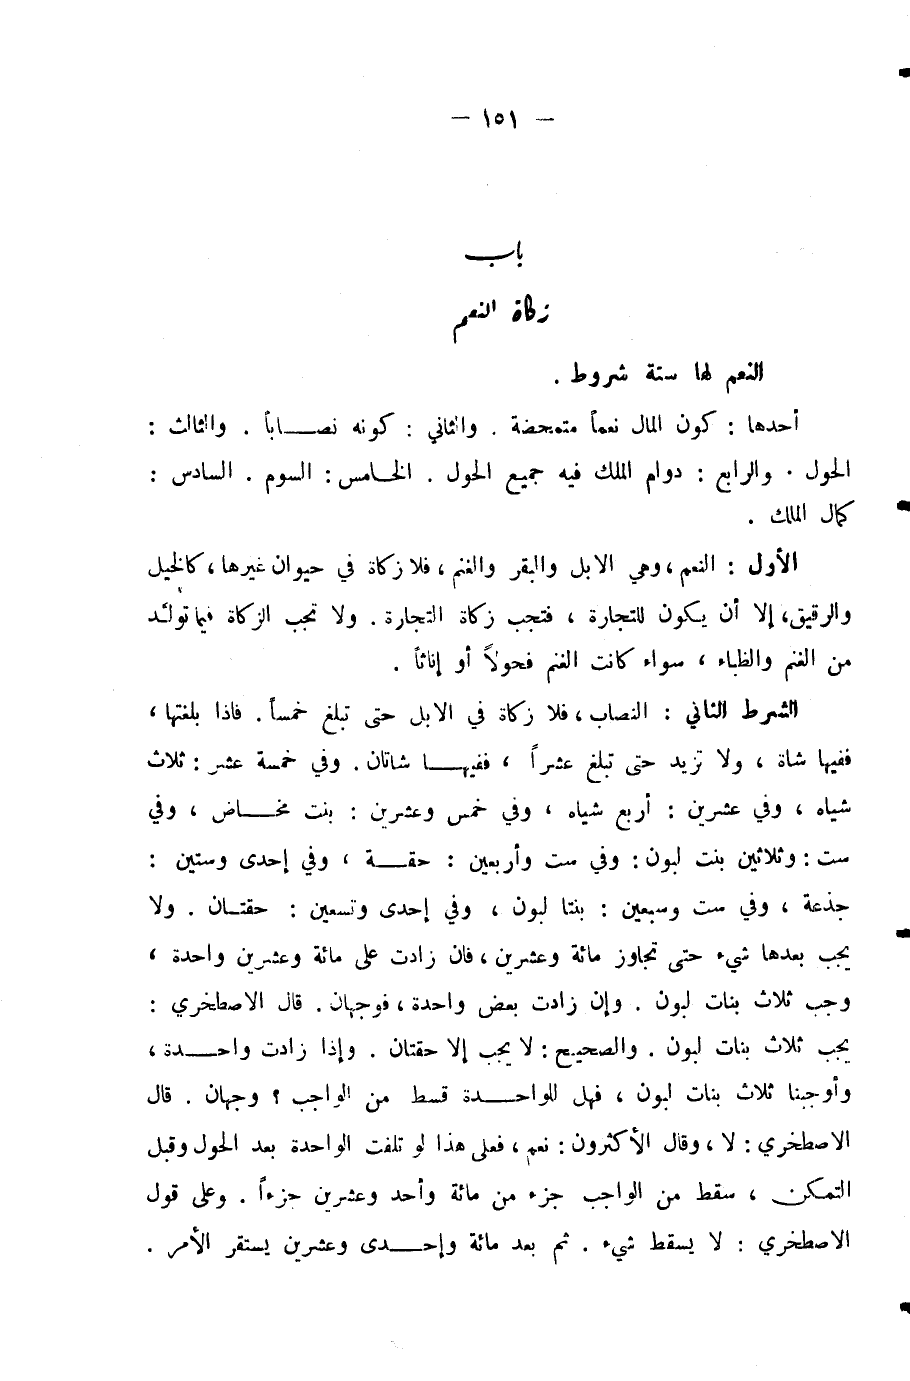 — ١٥١ —
باب
زكاة النعم
النعم لها ستة شروط .
أحدها : كون المال نعماً متمحضة . والثاني : كونه نصــاباً . والثالث :
الحول . والرابع : دوام الملك فيه جميع الحول . الخامس : السوم . السادس :
كمال الملك .
الأول : النعم ، وهي الابل والبقر والغنم ، فلا زكاة في حيوان غيرها ، كالخيل
والرقيق، إلا أن يكون للتجارة ، فتجب زكاة التجارة . ولا تجب الزكاة فيما تولّد
من الغنم والظباء ، سواء كانت الغنم فحولاً أو إناثاً .
الشرط الثاني : النصاب ، فلا زكاة في الابل حتى تبلغ خمساً . فاذا بلغتها ،
ففيها شاة ، ولا تزيد حتى تبلغ عشراً ، ففيهــا شاتان . وفي خمسة عشر : ثلاث
شياه ، وفي عشرين : أربع شياه ، وفي خمس وعشرين : بنت مخــاض ، وفي
ست : وثلاثين بنت لبون : وفي ست وأربعين : حقــة ، وفي إحدى وستين :
جذعة ، وفي ست وسبعين : بنتا لبون ، وفي إحدى وتسعين : حقتــان . ولا
يجب بعدها شيء حتى تجاوز مائة وعشرين ، فان زادت على مائة وعشرين واحدة ،
وجب ثلاث بنات لبون . وإن زادت بعض واحدة ، فوجهان . قال الاصطخري :
يجب ثلاث بنات لبون . والصحيح : لا يجب إلا حقتان . وإذا زادت واحــدة ،
وأوجبنا ثلاث بنات لبون ، فهل للواحــدة قسط من الواجب ؟ وجهان . قال
الاصطخري : لا ، وقال الأكثرون : نعم ، فعلى هذا لو تلفت الواحدة بعد الحول وقبل
التمكن ، سقط من الواجب جزء من مائة وأحد وعشرين جزءاً . وعلى قول
الاصطخري : لا يسقط شيء . ثم بعد مائة وإحــدى وعشرين يستقر الأمر .